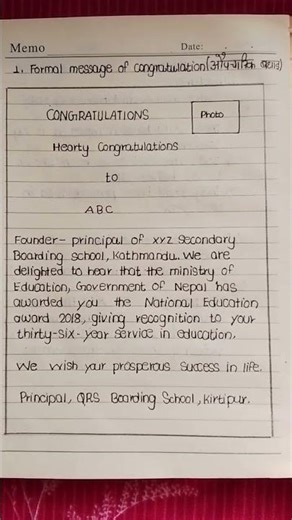 Memo Date:
1. Formal message of congratulation (औपचारिक बधाई)
CONGRATULATIONS Photo
Hearty Congratulations
to
ABC
Founder- principal of xyz Secondary
Boarding school, Kathmandu. We are
delighted to hear that the ministry of
Education, Government of Nepal has
awarded you the National Education
award 2018, giving recognition to your
thirty-six-year service in education.
We wish your prosperous success in life.
Principal, QRS Boarding School, Kirtipur.